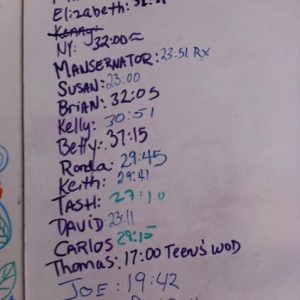 Elizabeth:
Kenny:
NY: 32:00
MANSERNATOR: 23:51 Rx
SUSAN: 23:00
BRIAN: 32:05
Kelly: 30:51
Betty: 37:15
Ronda: 29:45
Keith: 29:41
TASH: 27:10
DAVID: 23:11
CARLOS 29:15
Thomas: 17:00 Teen's WOD
JOE: 19:42